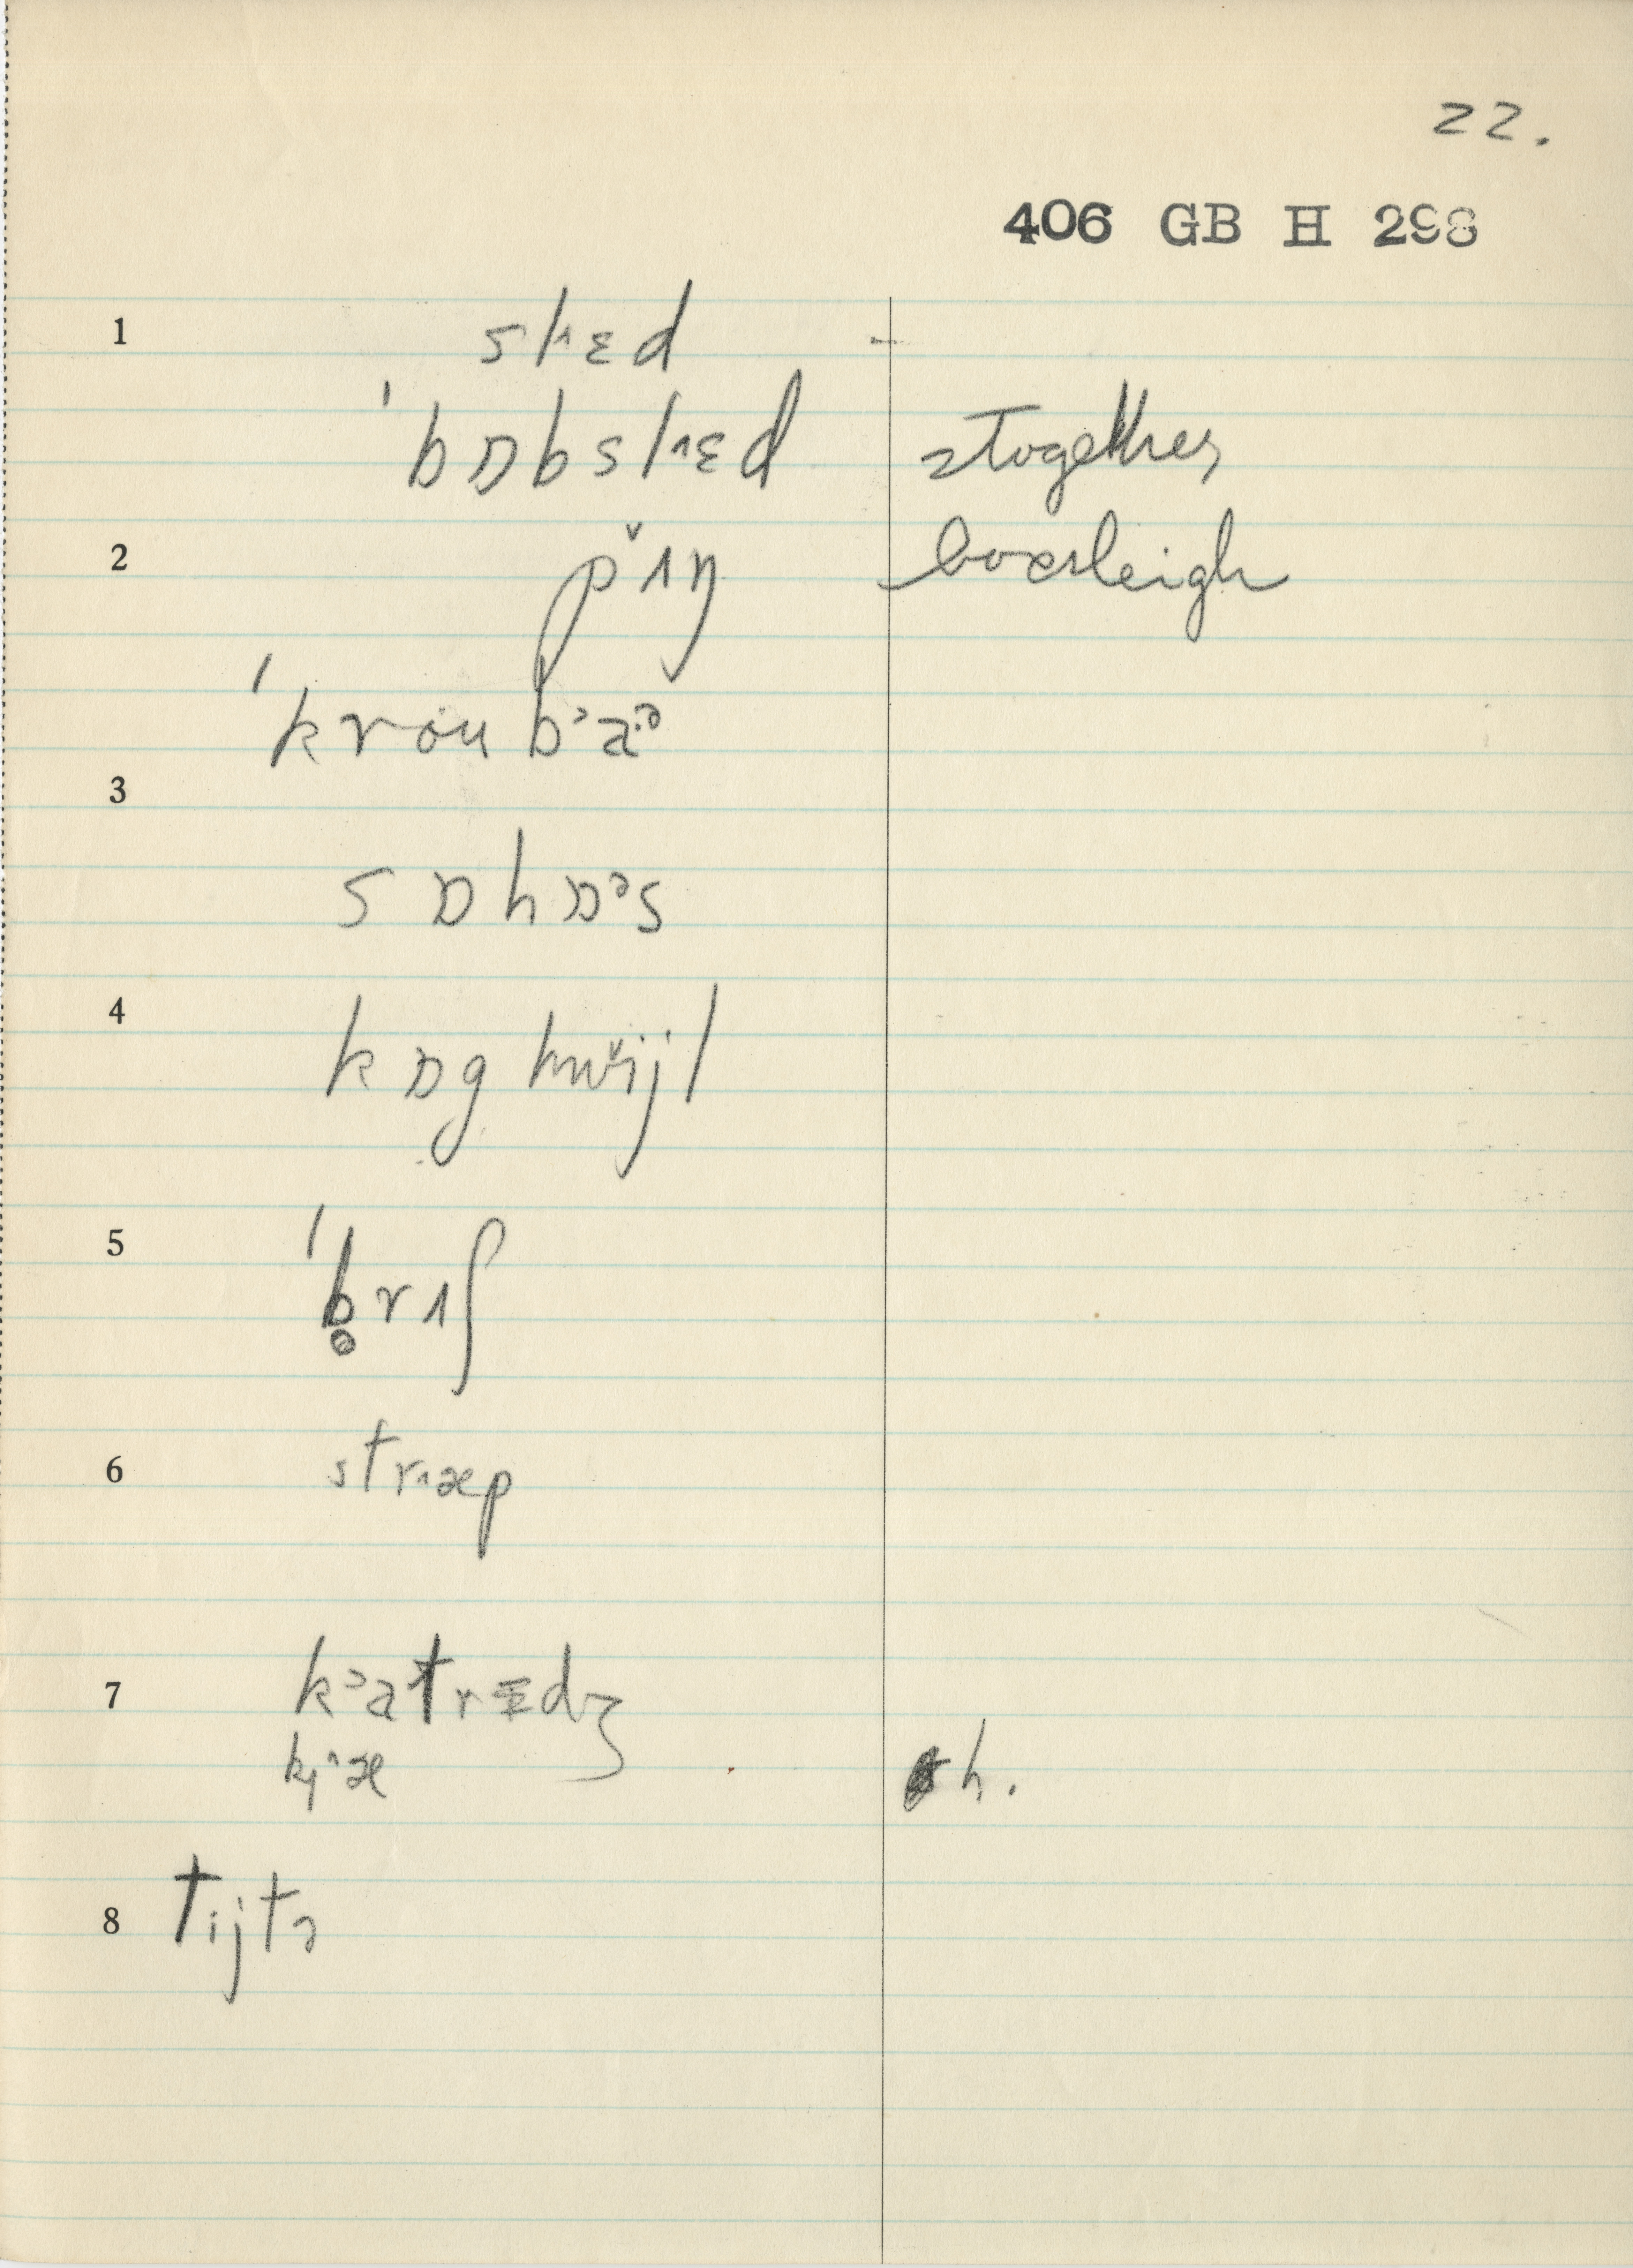 22.
406 GB H 298
1 slᶦɛd
ˈbɒbslᶦɛd 2together
2 pɪ̌ŋ boxsleigh
ˈkrouba·ᵊ
3
sɒhɒᵊs
4 kɒghwǐjl
5 ˈb̥rɪʃ
6 stræp
7 kᵊatrɛdʒ
h.
8 tijtə